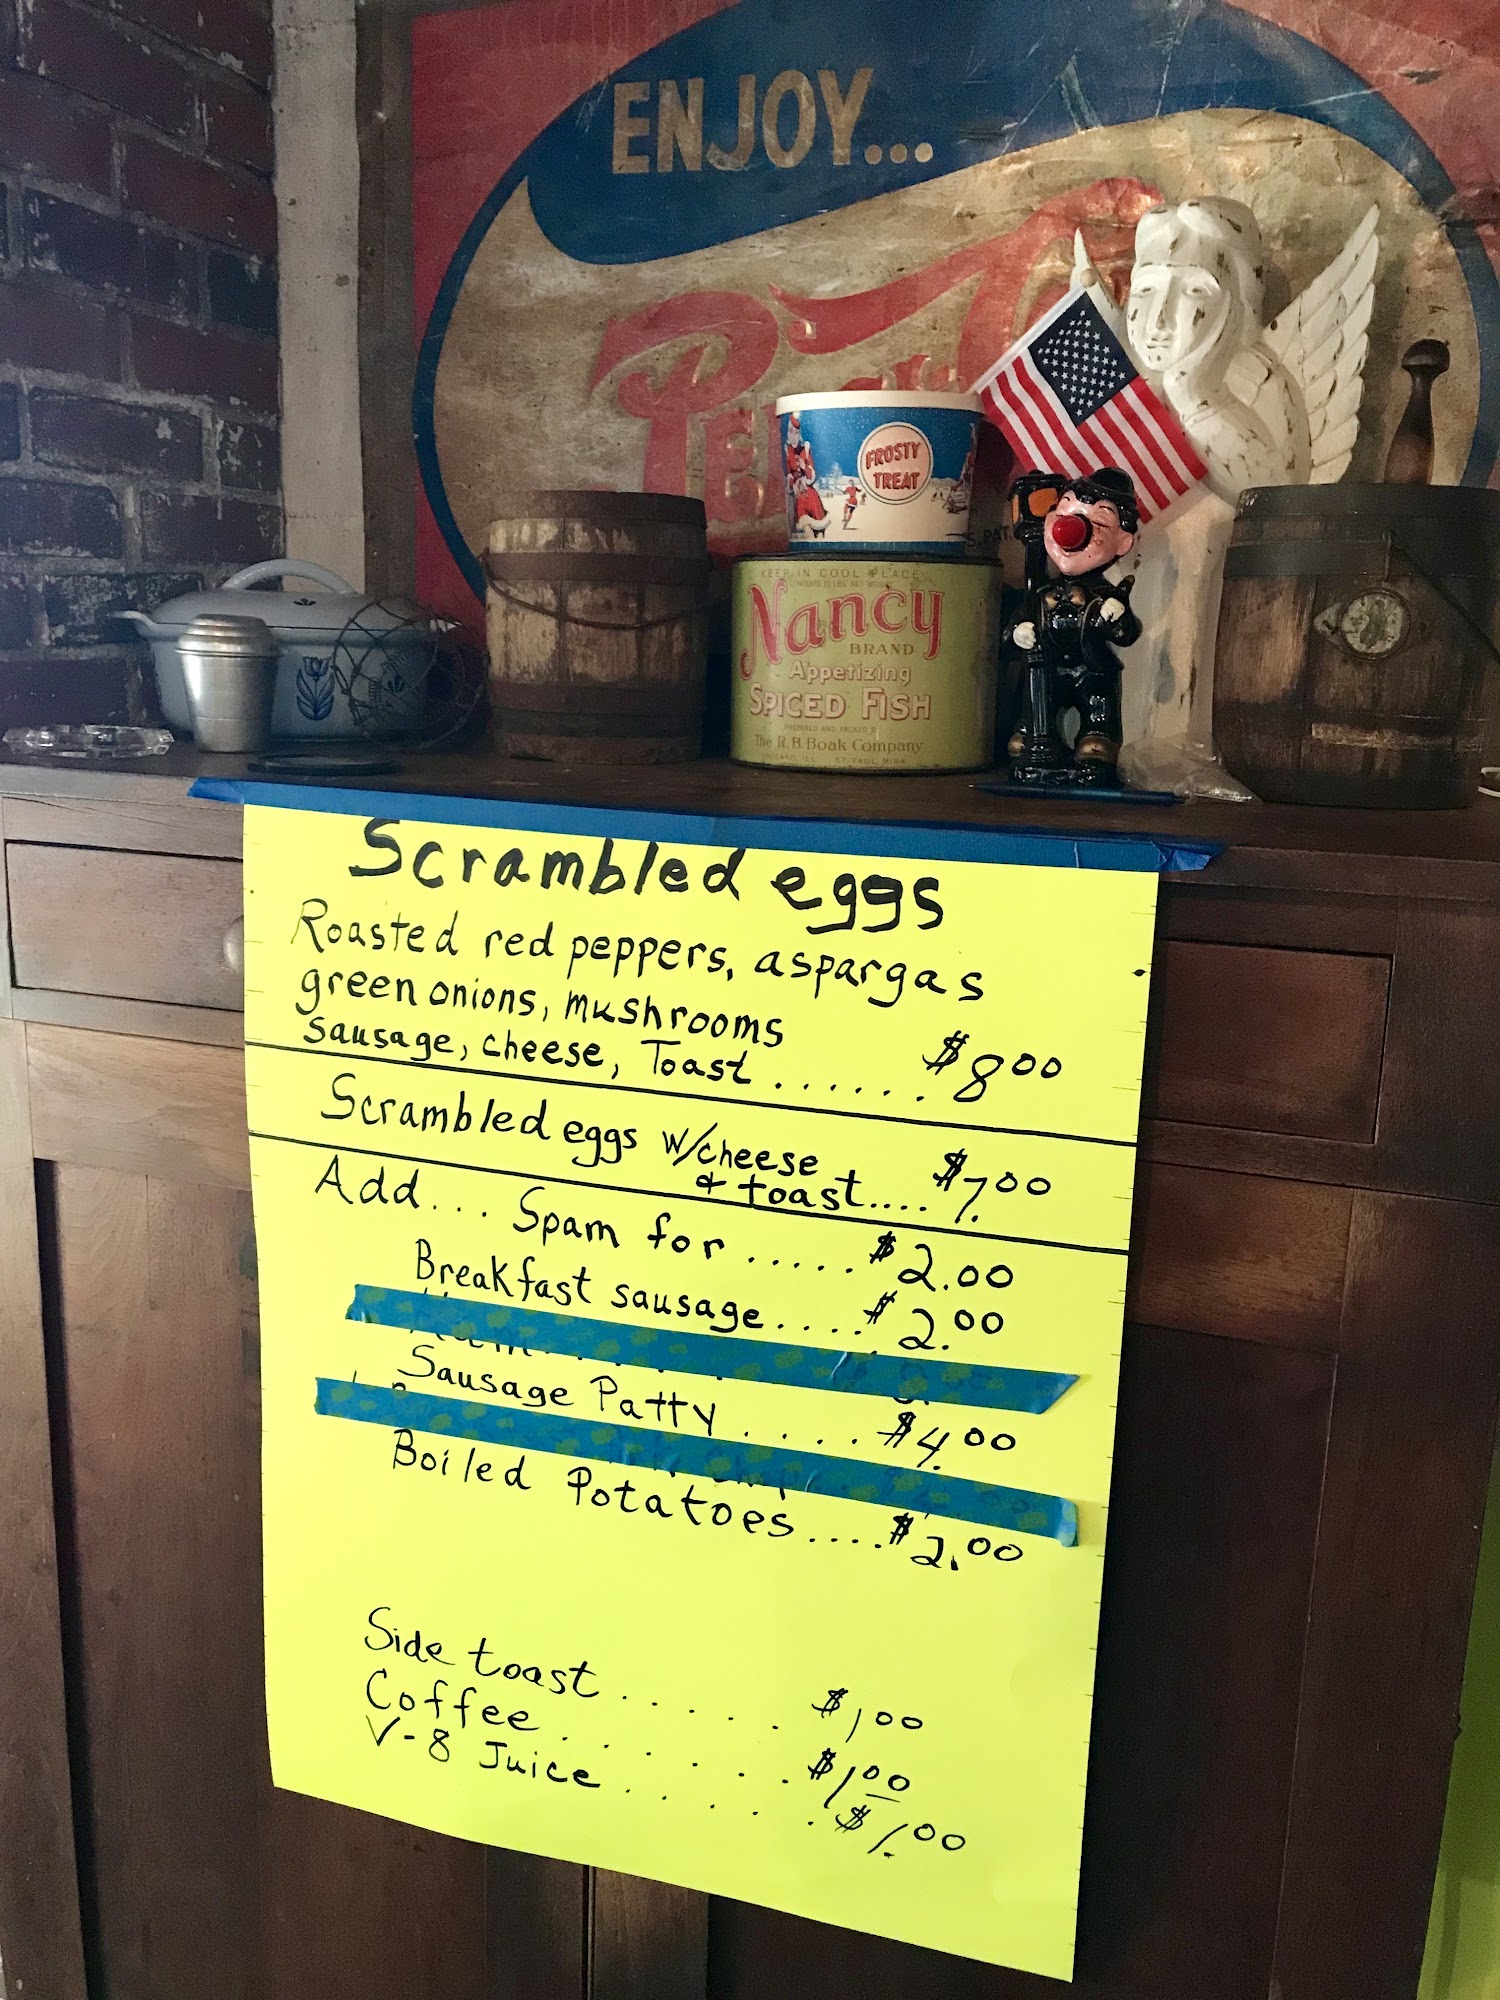 ENJOY...
FROSTY
TREAT
S. PAT.
KEEP IN COOL PLACE
Nancy
BRAND
Appetizing
SPICED FISH
PREPARED AND PACKED BY
The R.B. Boak Company
ST. PAUL, MINN.
Scrambled eggs
Roasted red peppers, aspargas
green onions, mushrooms
sausage, cheese, Toast ...... $8.00
Scrambled eggs w/cheese
& toast.... $7.00
Add... Spam for ..... $2.00
Breakfast sausage .... $2.00
Sausage Patty .... $4.00
Boiled Potatoes .... $2.00
Side toast ..... $1.00
Coffee ...... $1.00
V-8 Juice ..... $1.00